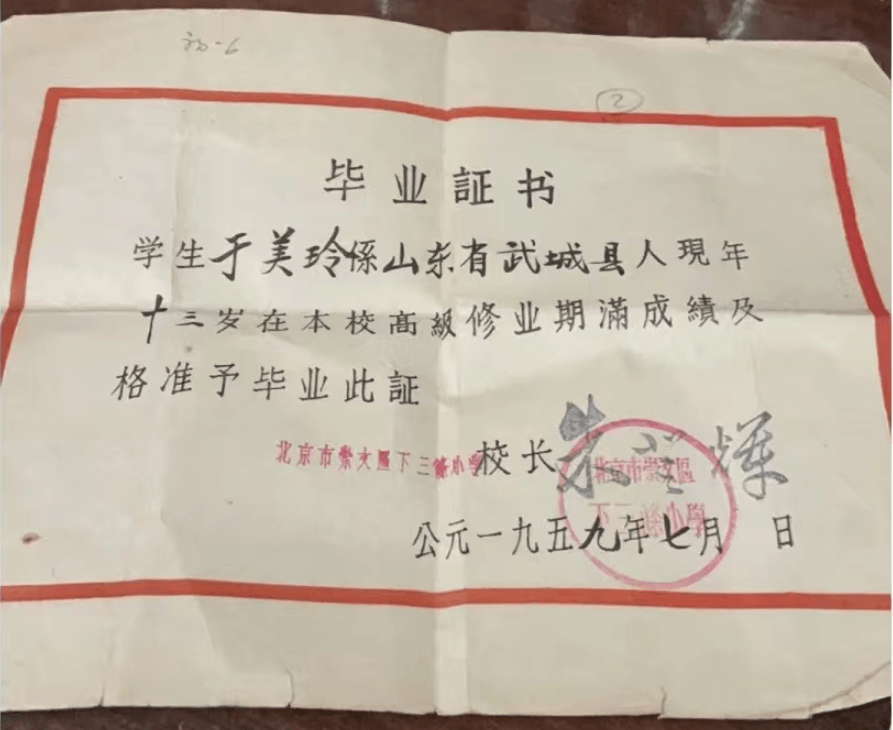 毕业証书
学生于美玲係山东省武城县人現年
十三岁在本校高級修业期滿成績及
格准予毕业此証
北京市崇文區下三條小学
校长
北京市崇文區
下三條小學
公元一九五九年七月 日
②